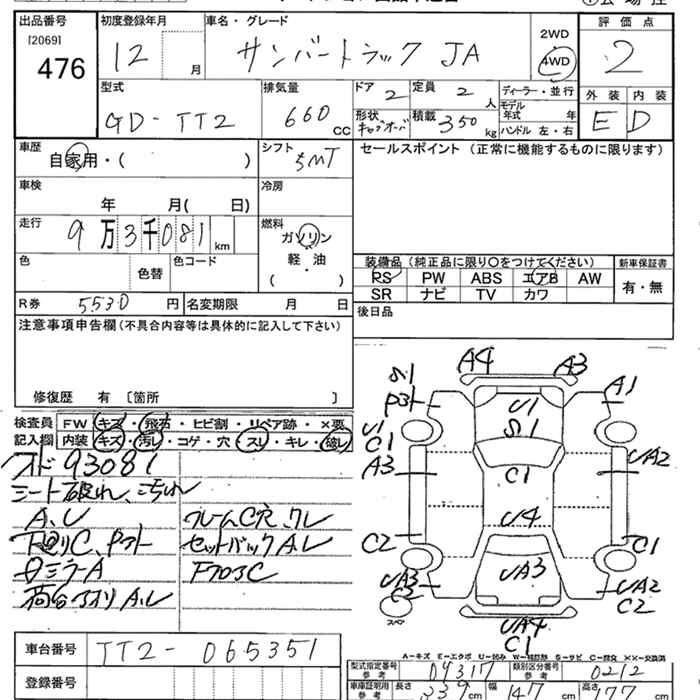 出品番号 初度登録年月 車名・グレード 評価点
[2069] 476 12 月 サンバートラック JA 2WD 4WD 2
型式 排気量 ドア 定員 ディーラー・並行 外装 内装
GD-TT2 660 CC 2 2 人 モデル年式 年 E D
形状 キャブオーバ 積載 350 kg ハンドル 左・右
車歴 自家用・( ) シフト 5MT セールスポイント (正常に機能するものに限ります)
車検 年 月( 日) 冷房
走行 9万3千081 km 燃料 ガソリン 軽・油 ( )
色 色替 色コード
装備品(純正品に限り○をつけてください) 新車保証書
PS PW ABS エアB AW 有・無
SR ナビ TV カワ
R券 5530 円 名変期限 月 日 後日品
注意事項申告欄(不具合内容等は具体的に記入して下さい)
修復歴 有 〔箇所 〕
検査員 FW キズ・飛石・ヒビ割・リペア跡・×要
記入欄 内装 キズ・汚レ・コゲ・穴・スレ・キレ・破レ
メーターオド 93081
シート破れ、こすれ
A,U フレームC穴、クレ
下廻りC、Pアト セットバックA,U
F703C
荷台アオリA,U
A4 A3
S1 Pアト A1
U1 C1 U1 S1
A3 C1 UA2
U4
C2 C1
UA3 C2 UA3 UA2 C2
スペア UA4 C1
A-キズ E-エクボ U-凹み W-補修跡 S-サビ C-腐食 ××-交換済
車台番号 TT2-065351
登録番号
型式指定番号 参考 04317 類別区分番号 参考 0212
車庫証明用 参考 長さ 339 cm 幅 147 cm 高さ 177 cm